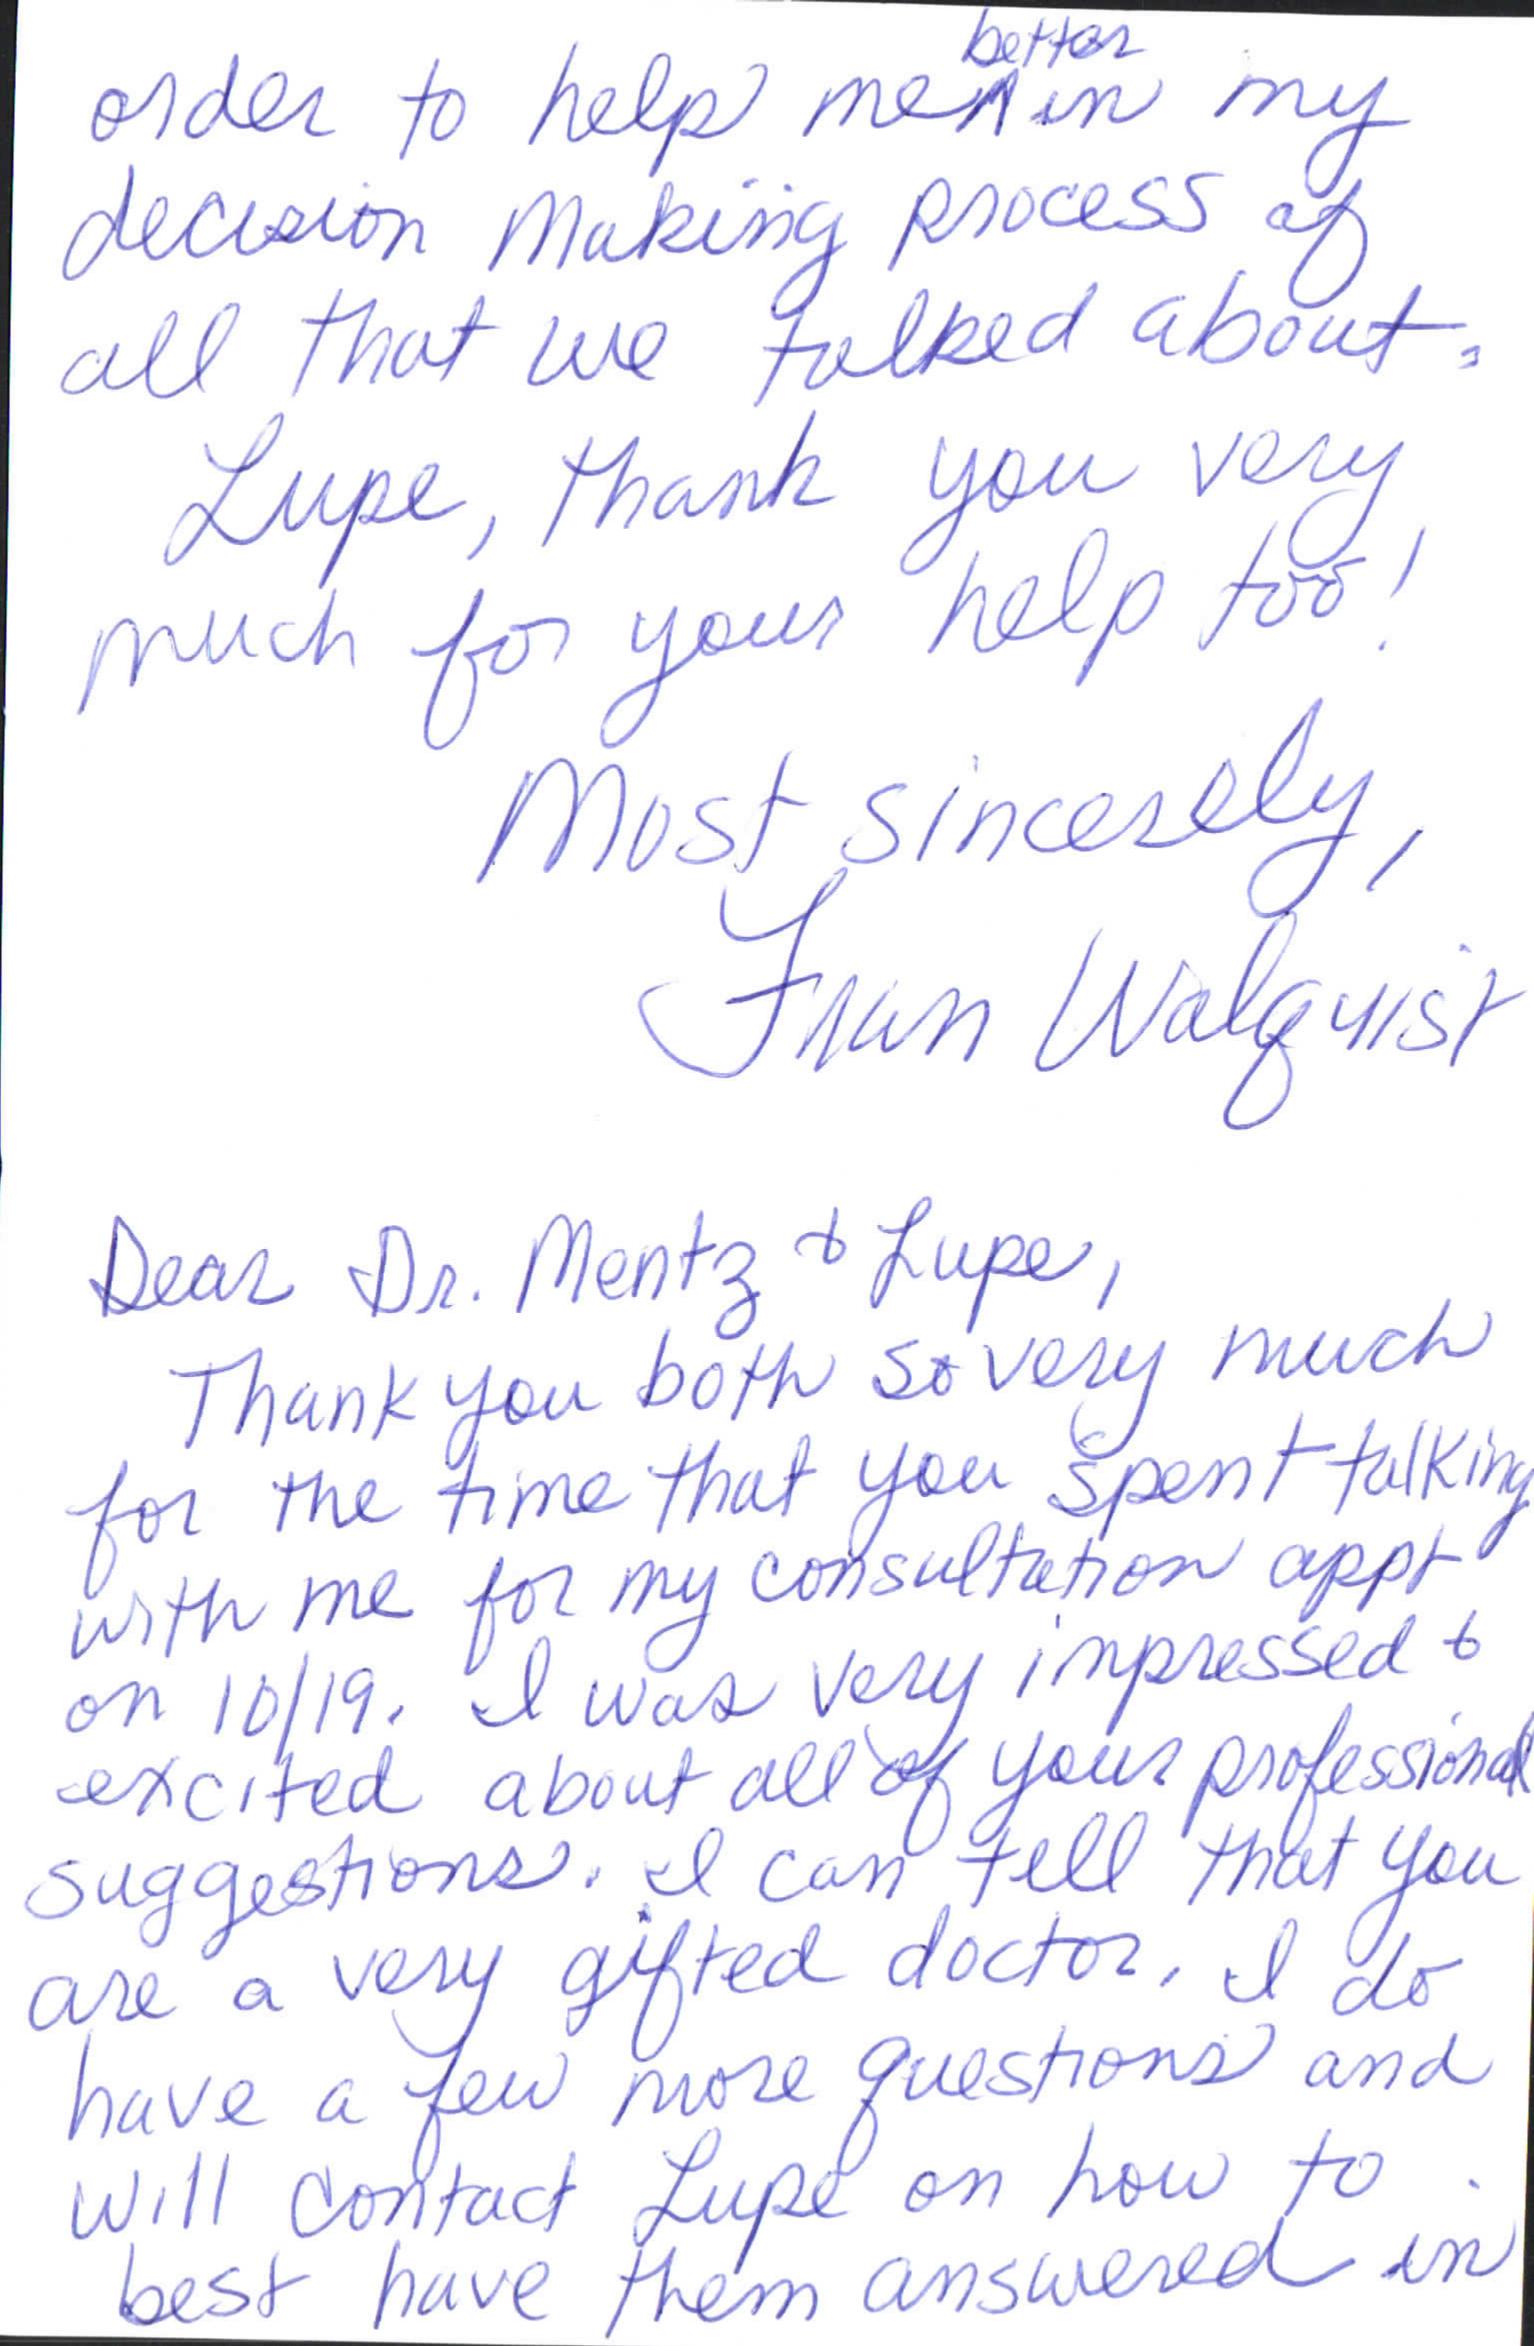 order to help me better in my
decision making process of
all that we talked about.
Lupe, thank you very
much for your help too!
Most sincerely,
Fran Walquist
Dear Dr. Mentz & Lupe,
Thank you both so very much
for the time that you spent talking
with me for my consultation appt
on 10/19. I was very impressed &
excited about all of your professional
suggestions. I can tell that you
are a very gifted doctor. I do
have a few more questions and
will contact Lupe on how to
best have them answered in